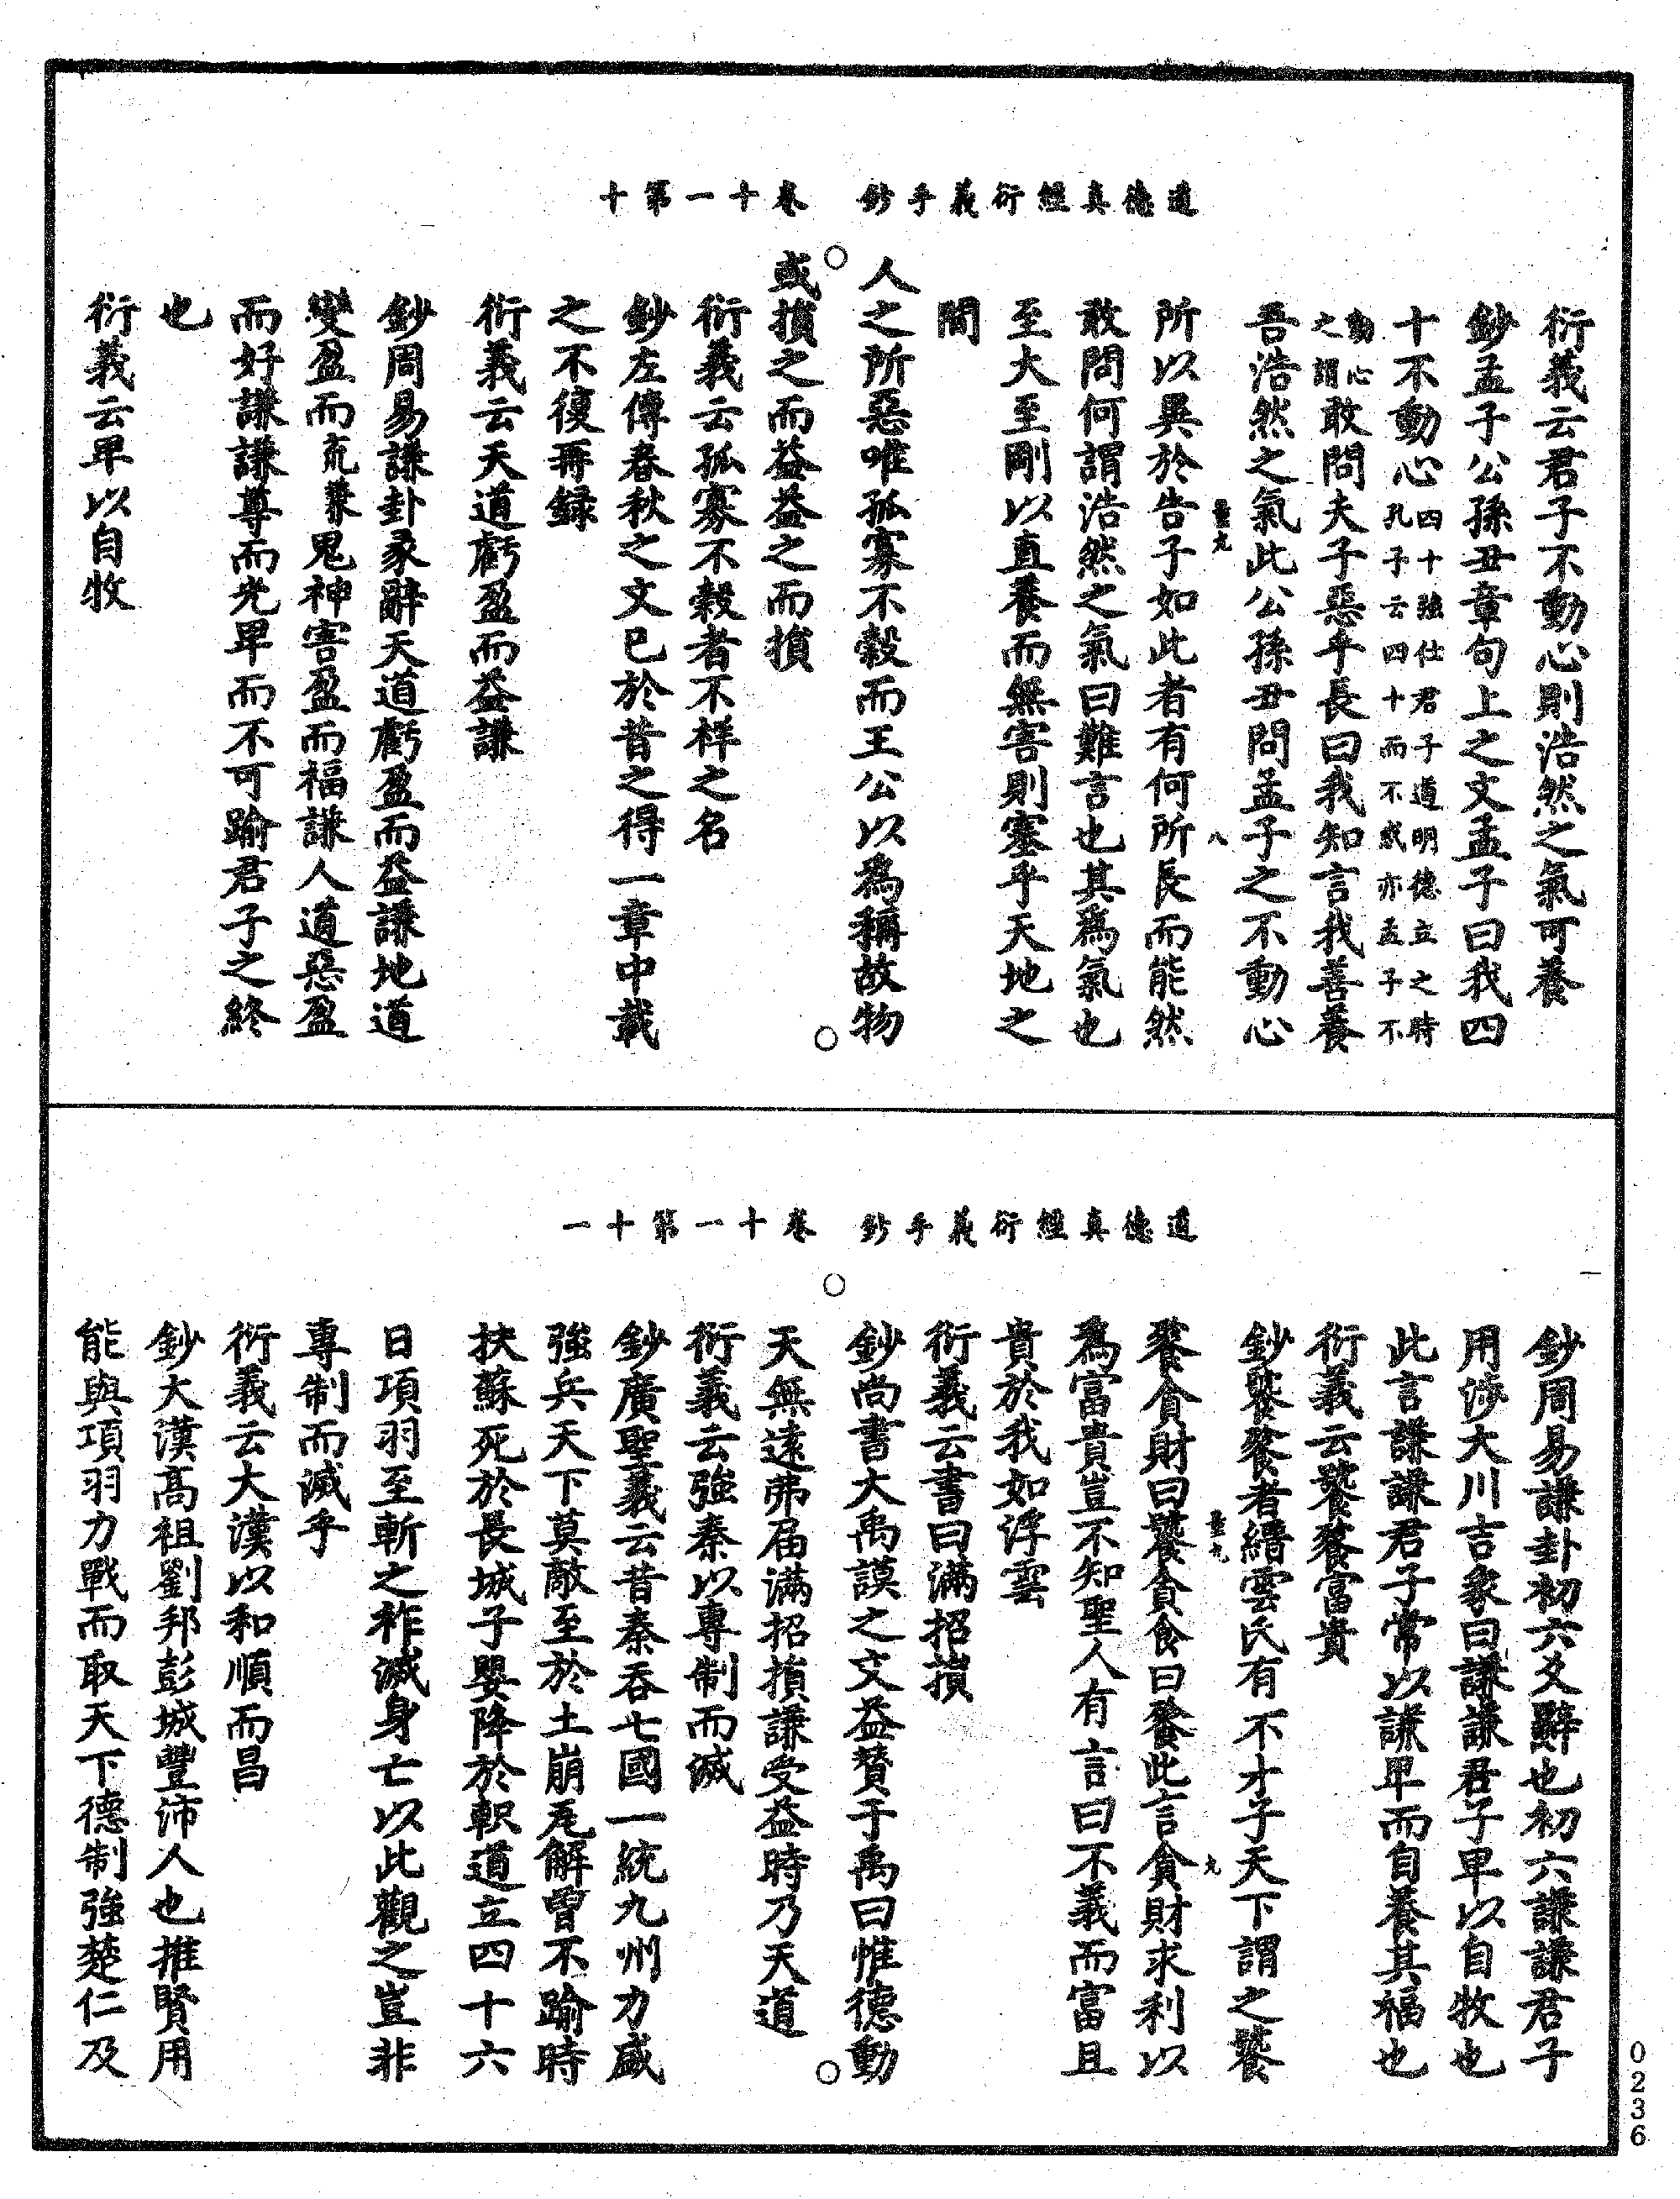 道德真經衍義手鈔　卷十一第十
衍義云君子不動心則浩然之氣可養
鈔孟子公孫丑章句上之文孟子曰我四
十不動心四十強仕君子道明德立之時孔子云四十而不惑亦孟子不
動心之謂敢問夫子惡乎長曰我知言我善養
吾浩然之氣此公孫丑問孟子之不動心
所以異於告子如此者有何所長而能然
敢問何謂浩然之氣曰難言也其爲氣也
至大至剛以直養而無害則塞乎天地之
間
人之所惡唯孤寡不穀而王公以爲稱故物
或損之而益益之而損
衍義云孤寡不穀者不祥之名
鈔左傳春秋之文已於昔之得一章中載
之不復再録
衍義云天道虧盈而益謙
鈔周易謙卦彖辭天道虧盈而益謙地道
變盈而流謙鬼神害盈而福謙人道惡盈
而好謙謙尊而光卑而不可踰君子之終
也
衍義云卑以自牧
八
道德真經衍義手鈔　卷十一第十一
鈔周易謙卦初六爻辭也初六謙謙君子
用涉大川吉象曰謙謙君子卑以自牧也
此言謙謙君子常以謙卑而自養其福也
衍義云饕餮富貴
鈔饕餮者縉雲氏有不才子天下謂之饕
餮貪財曰饕貪食曰餮此言貪財求利以
爲富貴豈不知聖人有言曰不義而富且
貴於我如浮雲
衍義云書曰滿招損
鈔尚書大禹謨之文益贊于禹曰惟德動
天無遠弗届滿招損謙受益時乃天道
衍義云強秦以專制而滅
鈔廣聖義云昔秦吞七國一統九州力盛
強兵天下莫敵至於土崩瓦解曾不踰時
扶蘇死於長城子嬰降於軹道立四十六
日項羽至斬之祚滅身亡以此觀之豈非
專制而滅乎
衍義云大漢以和順而昌
鈔大漢高祖劉邦彭城豐沛人也推賢用
能與項羽力戰而取天下德制強楚仁及
九
0236